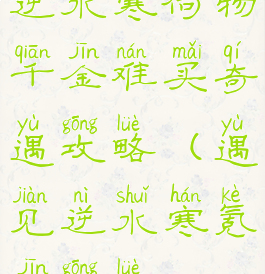 逆水寒狗物
qiān jīn nán mǎi qí
千金难买奇
yù gōng lüè yù
遇攻略(遇
jiàn nì shuǐ hán kè
见逆水寒氪
jīn gōng lüè